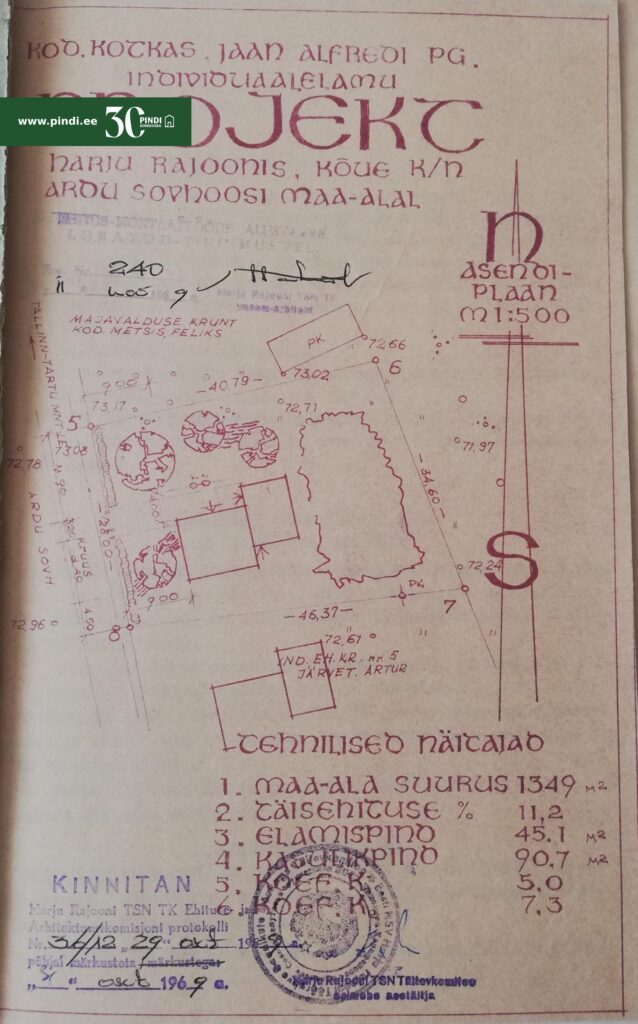 KOD. KOTKAS, JAAN ALFREDI PG.
INDIVIDUAALELAMU
PROJEKT
www.pindi.ee 30 PINDI KINNISVARA
HARJU RAJOONIS, KÕUE K/N
ARDU SOVHOOSI MAA-ALAL
EHITUS-MONTAAŽTÖÖDE ALUSTAMIS
LUBATUD TINGIMUSTEL
240
Harju Rajooni TSN TK
N
ASENDI-
PLAAN
M 1:500
MAJAVALDUSE KRUNT
KOD. METSIS, FELIKS
TALLINN-TARTU MNT
PK
72,66
6
73,02
40,79
9,00
73,17
72,71
5
73,08
72,78
71,97
34,60
28,00
ARDU SOVH
S
72,24
9,00
4,50
PK
7
46,37
72,96
8
72,61
IND. EH. KR. nr. 5
JÄRVET. ARTUR
TEHNILISED NÄITAJAD
1. MAA-ALA SUURUS 1349 M2
2. TÄISEHITUSE % 11,2
3. ELAMISPIND 45.1 M2
4. KASULIKPIND 90,7 M2
5. KOEF. K 5,0
6. KOEF. K 7,3
KINNITAN
Harju Rajooni TSN TK Ehituse ja
Arhitektuurikomisjoni protokolli
Nr. 34/12 „29" okt 1969 a.
põhjal märkusteta / märkustega
" okt 1969 a.
Harju Rajooni TSN Täitevkomitee
esimehe asetäitja